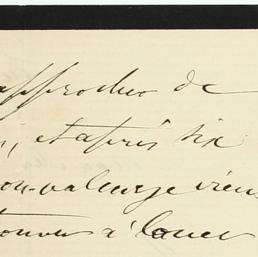 approcher de
, et après six
non-valeur je viens
trouver à louer